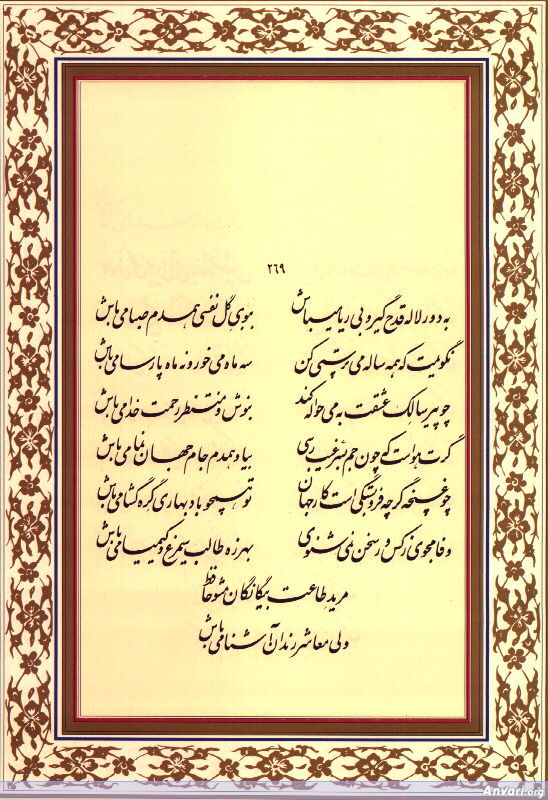 ۲۶۹
به دور لاله قدح گیر و بی ریا میباش    ببوی گل نفسی همدم صبا می باش
نگویمت که همه ساله می پرستی کن    سه ماه می خور و نه ماه پارسا می باش
چو پیر سالک عشقت به می حواله کند    بنوش و منتظر رحمت خدا می باش
گرت هواست که چون جم بسر غیب رسی    بیا و همدم جام جهان نمای باش
چو غنچه گرچه فروبستگی است کار جهان    تو همچو باد بهاری گره گشا می باش
وفا مجوی ز کس ور سخن نمی شنوی    بهرزه طالب سیمرغ و کیمیا می باش
مرید طاعت بیگانگان مشو حافظ
ولی معاشر رندان آشنا می باش
Anvari.org